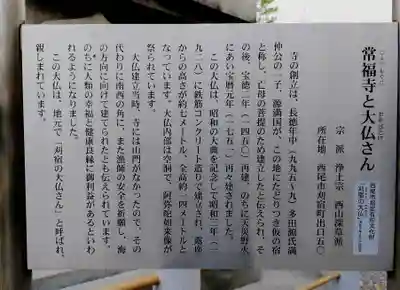 常福寺と大仏さん
西尾市指定有形文化財
「刈宿の大仏」
宗派 浄土宗 西山深草派
所在地 西尾市刈宿町出口五〇
寺の創立は、長徳年中(九九五~九)多田蔵氏満
仲公の二子、源満国が、この地にたどりつき仮の宿
と称し、亡母の菩提のため建立したと伝えられ、そ
の後、宝徳二年(一四五〇)再建、のちに天災野火
にあい宝暦元年(一七五一)再々建されました。
この大仏は、昭和の大典を記念して昭和三年(一
九二八)に鉄筋コンクリート造りで建立され、露座
からの高さが約七メートル、全高約一四メートルと
なっています。大仏内部は空洞で、阿弥陀如来像が
祭られています。
大仏建立当時、寺には山門がなかったので、その
代わりに南西の角に、また漁師の安全を祈願し、海
の方向に向けて建てられたとも伝えられています。
のちに人類の幸福と健康良縁に御利益があるといわ
れるようになりました。
この大仏は、地元で「刈宿の大仏さん」と呼ばれ、
親しまれています。